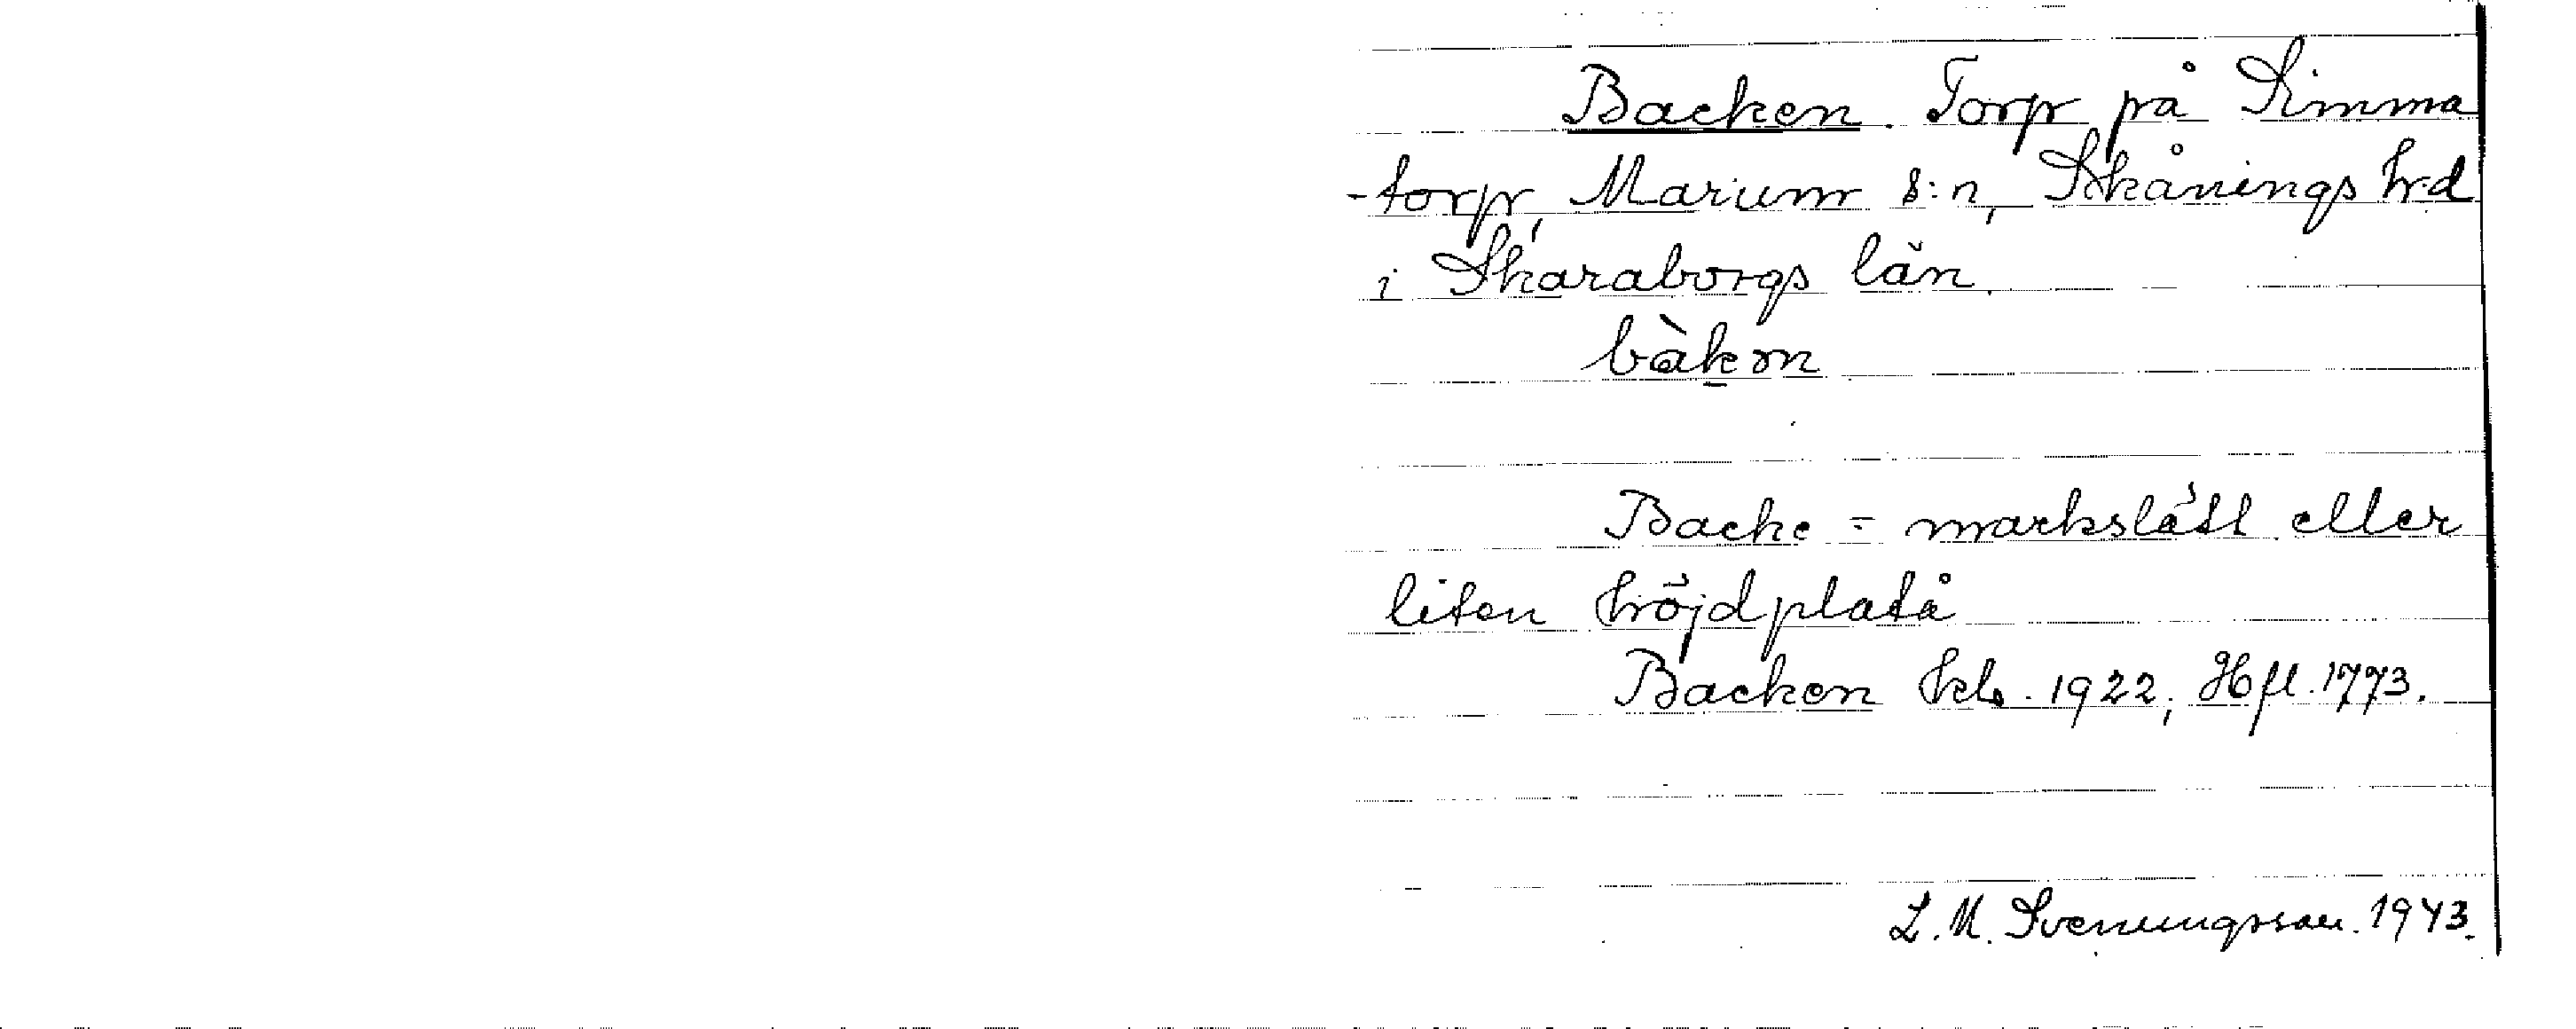 Backen. Torp på Simma
-torp, Marums s:n, Skånings hd
i Skaraborgs län.
bàkən
Backe = markslätt eller
liten höjdplatå
Backen hkb. 1922, Hfl. 1773.
L. M. Svenungsson. 1943.